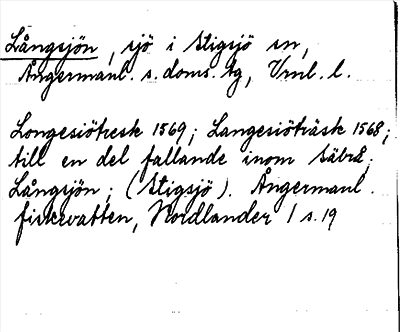 Långsjön, sjö i Stigsjö sn,
Ångermanl. s. doms. tg, Vrnl. l.
Longesiötresk 1569; Langesiöträsk 1568;
till en del fallande inom Säbrå;
Långsjön; (Stigsjö). Ångermanl.
fiskevatten, Nordlander 1 s. 19